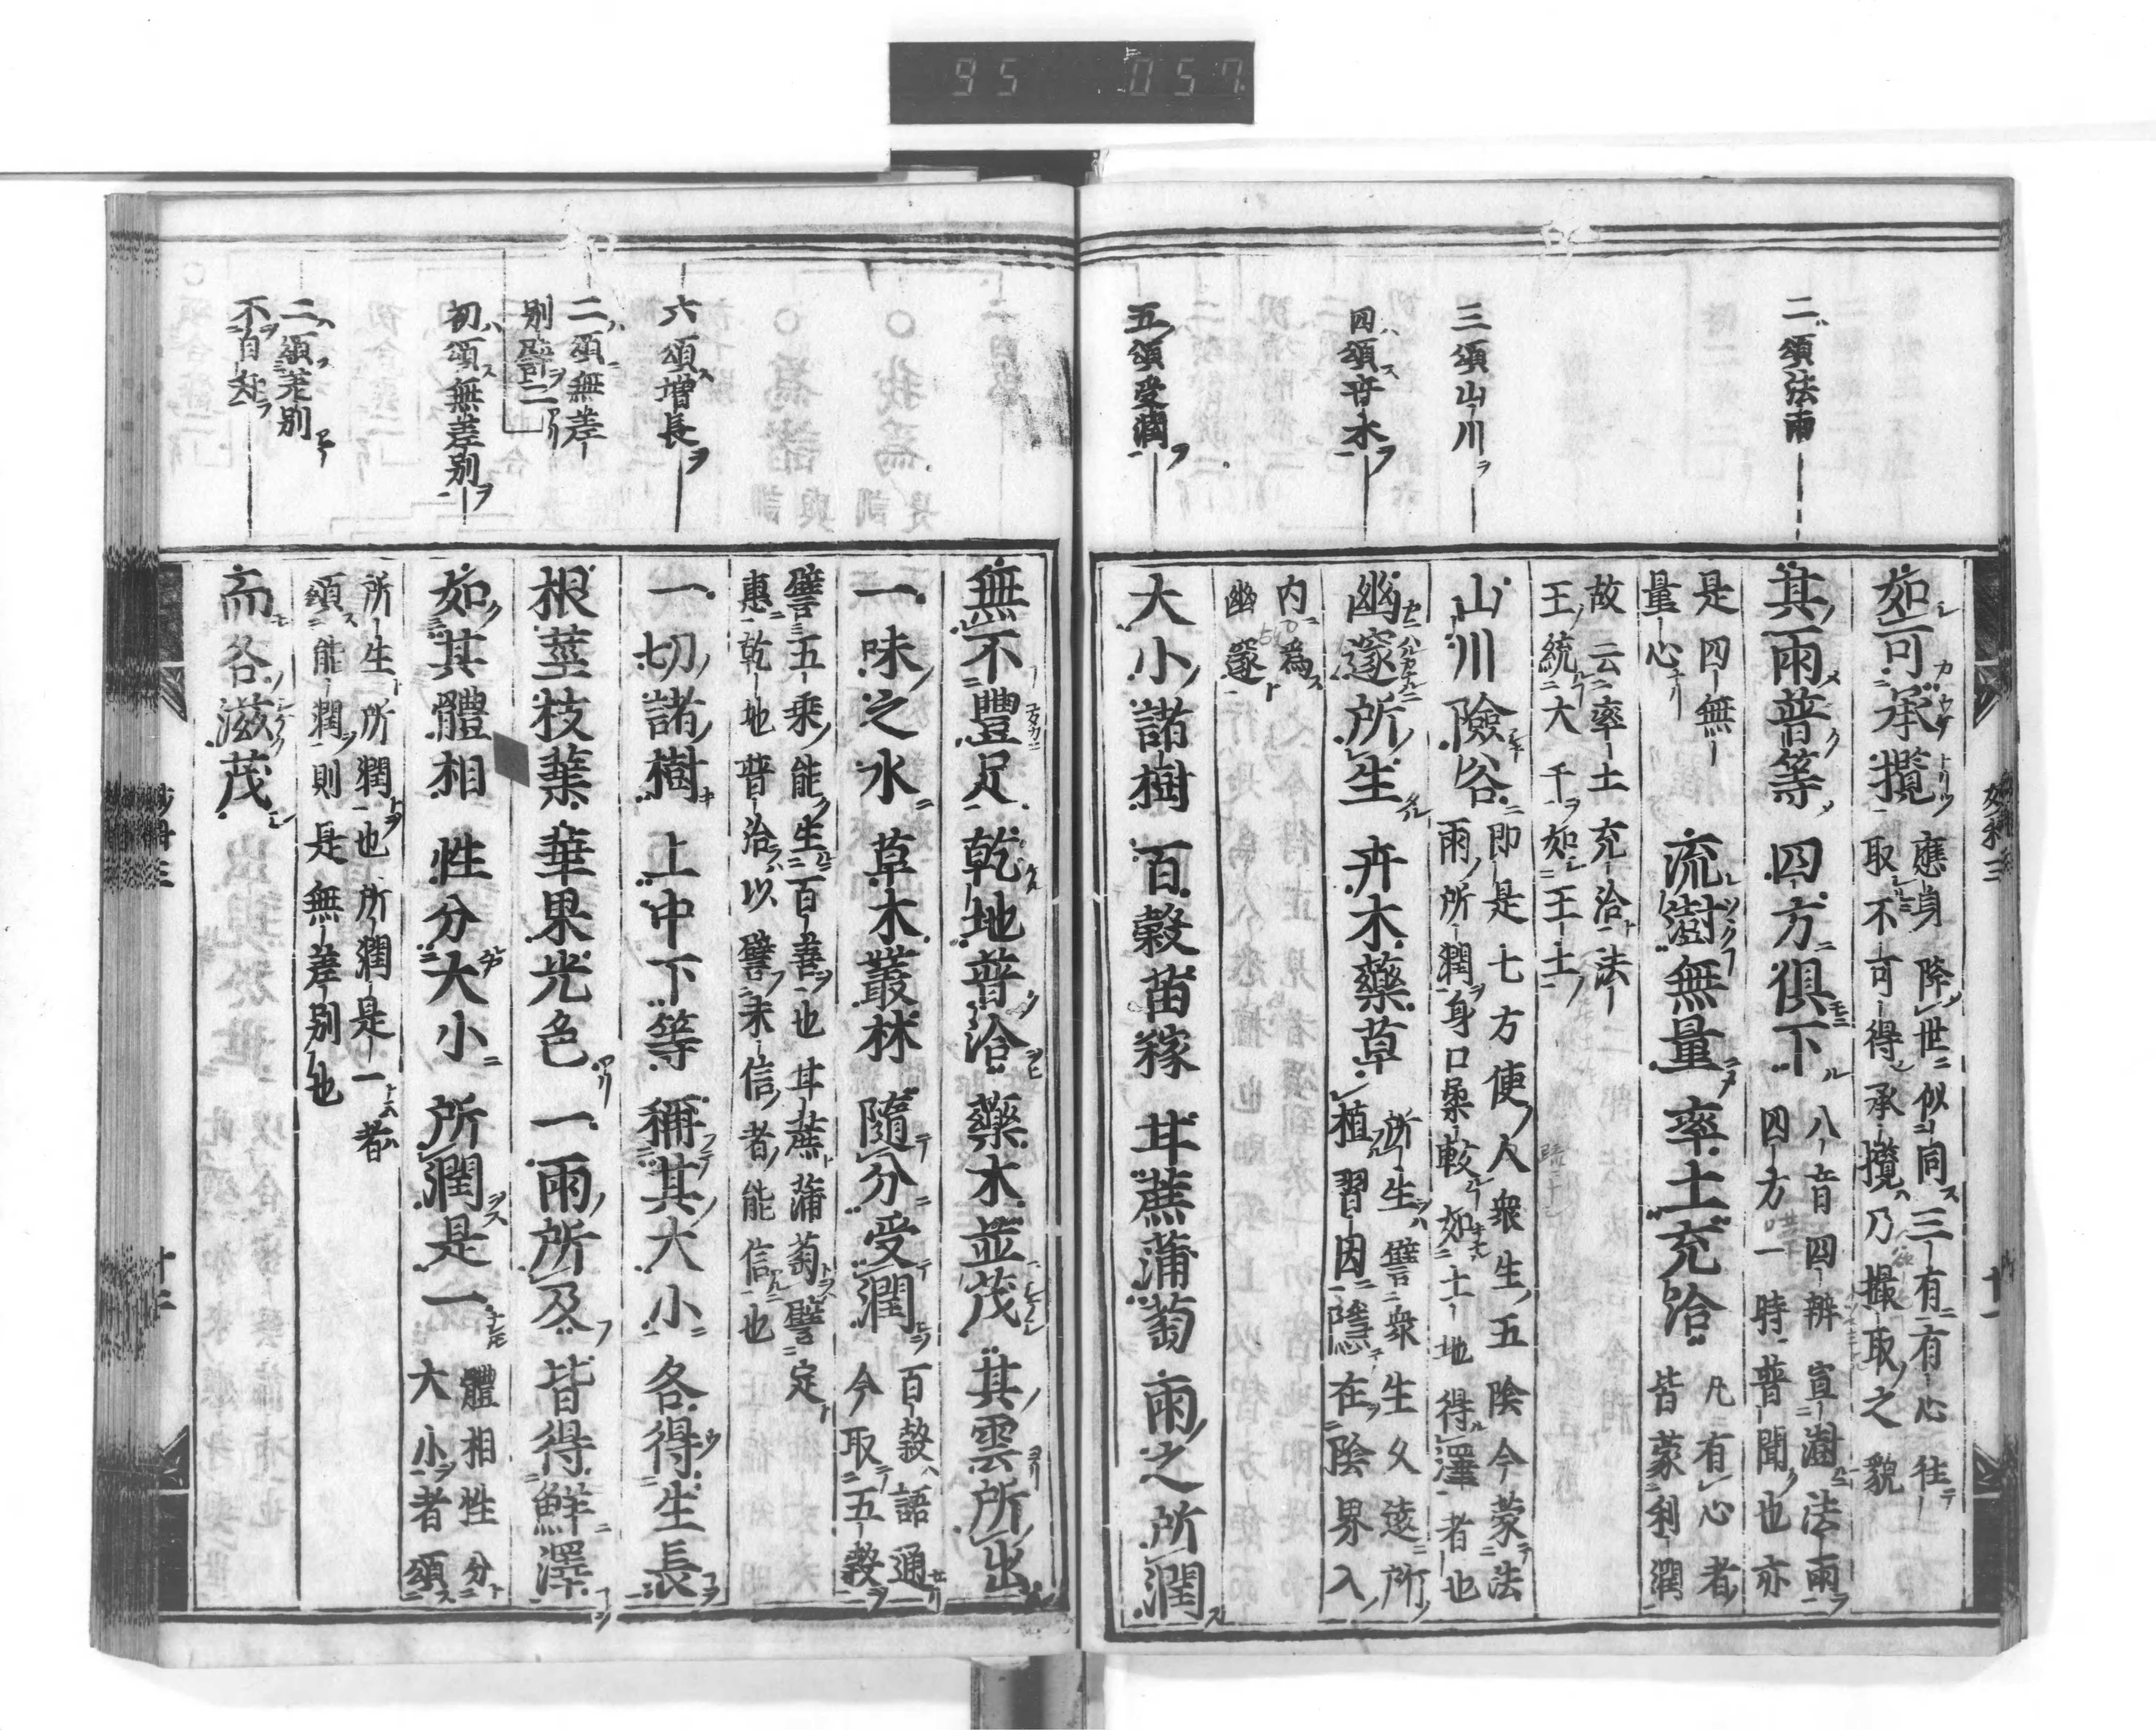 95 057
二頌法雨
三頌山川
四頌卉木
五頌受潤
如可承攬
應身降世似同三有有心往
取不可得承攬乃撮取之貌
其雨普等四方俱下
八音四辨宣澍法雨
四方一時普聞也亦
是四無
量心
流澍無量率土充洽
凡有心者
皆蒙利潤
故云率土充洽法
王統大千如王土
山川險谷
即是七方便人衆生五陰今蒙法
雨所潤身口柔軟如土地得澤者也
幽邃所生卉木藥草
所生譬衆生久遠所
植習因隱在陰界入
内爲
幽邃
大小諸樹百穀苗稼甘蔗蒲萄雨之所潤
六頌增長
二頌無差
別譬二
初頌無差別
二頌差別
不自知
無不豐足乾地普洽藥木並茂其雲所出
一味之水草木叢林隨分受潤
百穀語通
今取五穀
譬五乘能生百善也甘蔗蒲萄譬定
惠乾地普洽以譬未信者能信也
一切諸樹上中下等稱其大小各得生長
根莖枝葉華果光色一雨所及皆得鮮澤
如其體相性分大小所潤是一
體相性分
大小者頌
所生所潤也所潤是一者
頌能潤則是無差別也
而各滋茂